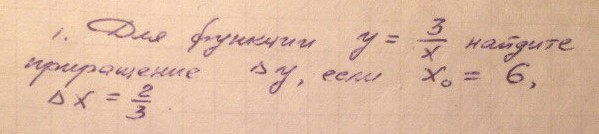 1. Для функции y = 3/x найдите
приращение Δy, если x₀ = 6,
Δx = 2/3.